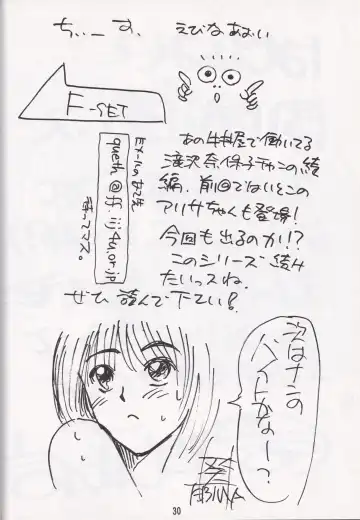 ちぃーす、えびなあおい
F-SET
Eメールのあて先
queth@ff.iij4u.or.jp
待ってマス。
あの牛丼屋で働いてる
滝沢奈保子チャンの続
編。前回でないとこの
アリサちゃんも登場!
今回も出るのカ!?
このシリーズ続み
たいっスね。
ぜひ読んで下さい!
次はナニの
バイトかなー?
EBINA
30